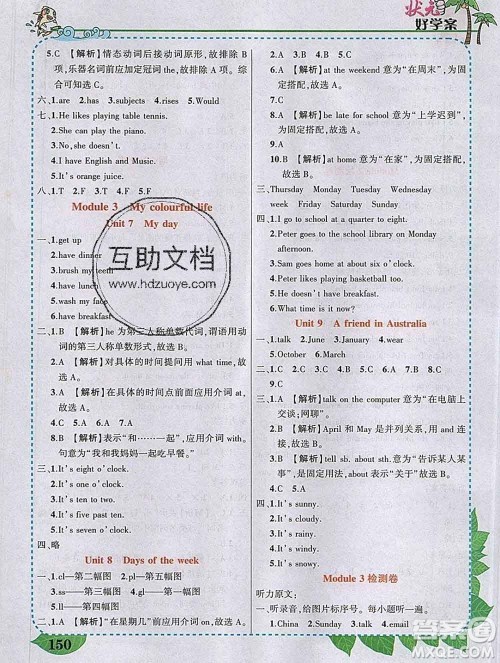 状元
好学案
5.C 【解析】情态动词后接动词原形,故排除 B
项,乐器名词前应加定冠词 the,故排除 A 项。综
合可知选 C。
六、1.are 2.has 3.subjects 4.rises 5.Would
七、1.He likes playing table tennis.
2.She can play the piano.
3.No, she doesn't.
4.I have English and Music.
5.It's orange juice.
八、1.T 2.F 3.T 4.F 5.F
Module 3 My colourful life
Unit 7 My day
一、1.get up
2.have dinner
3.brush my teeth
4.have lunch
5.wash my face
6.have breakfast
二、1.B 【解析】he 为第三人称单数代词,谓语用动
词的第三人称单数形式。故选 B。
2.A 【解析】对具体的时间提问用 what time。
故选 A。
3.A 【解析】在具体的时间点前面应用介词 at。
故选 A。
4.B 【解析】表示“和……一起”,应用介词 with。
句意为“我和我妈妈一起吃早餐。”
三、1.It's eight o'clock.
2.It's one o'clock.
3.It's ten to two.
4.It's five past ten.
5.It's seven o'clock.
四、略
Unit 8 Days of the week
一、1.cl—第二幅图 2.pl—第五幅图
3.gl—第三幅图 4.bl—第一幅图
5.sl—第四幅图
二、1.A 【解析】“在星期几”前应用介词 on。故选 A。
2.A 3.B 4.A 5.B 6.A 7.B
8.A 【解析】at the weekend 意为“在周末”,为
固定搭配。故选 A。
9.A 【解析】be late for school 意为“上学迟到”,
为固定搭配,故选 A。
10.B 【解析】at home 意为“在家”,为固定搭
配,故选 B。
三、Thursday Monday Tuesday Wednesday
week Friday Sunday Saturday
四、1.I go to school at a quarter to eight.
2.Peter goes to the school library on Monday
afternoon.
3.Sam goes home at about two o'clock.
4.Peter likes playing basketball too.
5.They have breakfast.
6.What time is it now?
Unit 9 A friend in Australia
一、1.talk 2.June 3.January 4.wear
5.October 6.March
二、1.A 【解析】talk on the computer 意为“在电脑上
交谈;网聊”。故选 A。
2.B 【解析】April 和 May 是并列关系,应用介词
and。故选 B。
3.B 【解析】tell sb. about sth. 意为“告诉某人某
事”,是固定用法,about 表示“关于”故选 B。
4.C 5.A
三、1.It's sunny.
2.It's cloudy.
3.It's rainy.
4.It's windy.
5.It's snowy.
Module 3 检测卷
听力原文:
一、听录音,给图片标序号。每词读两遍。
1.China 2.Sunday 3.talk 4.email
150
互助文档
www.hdzuoye.com
答案圈
MXQE.COM